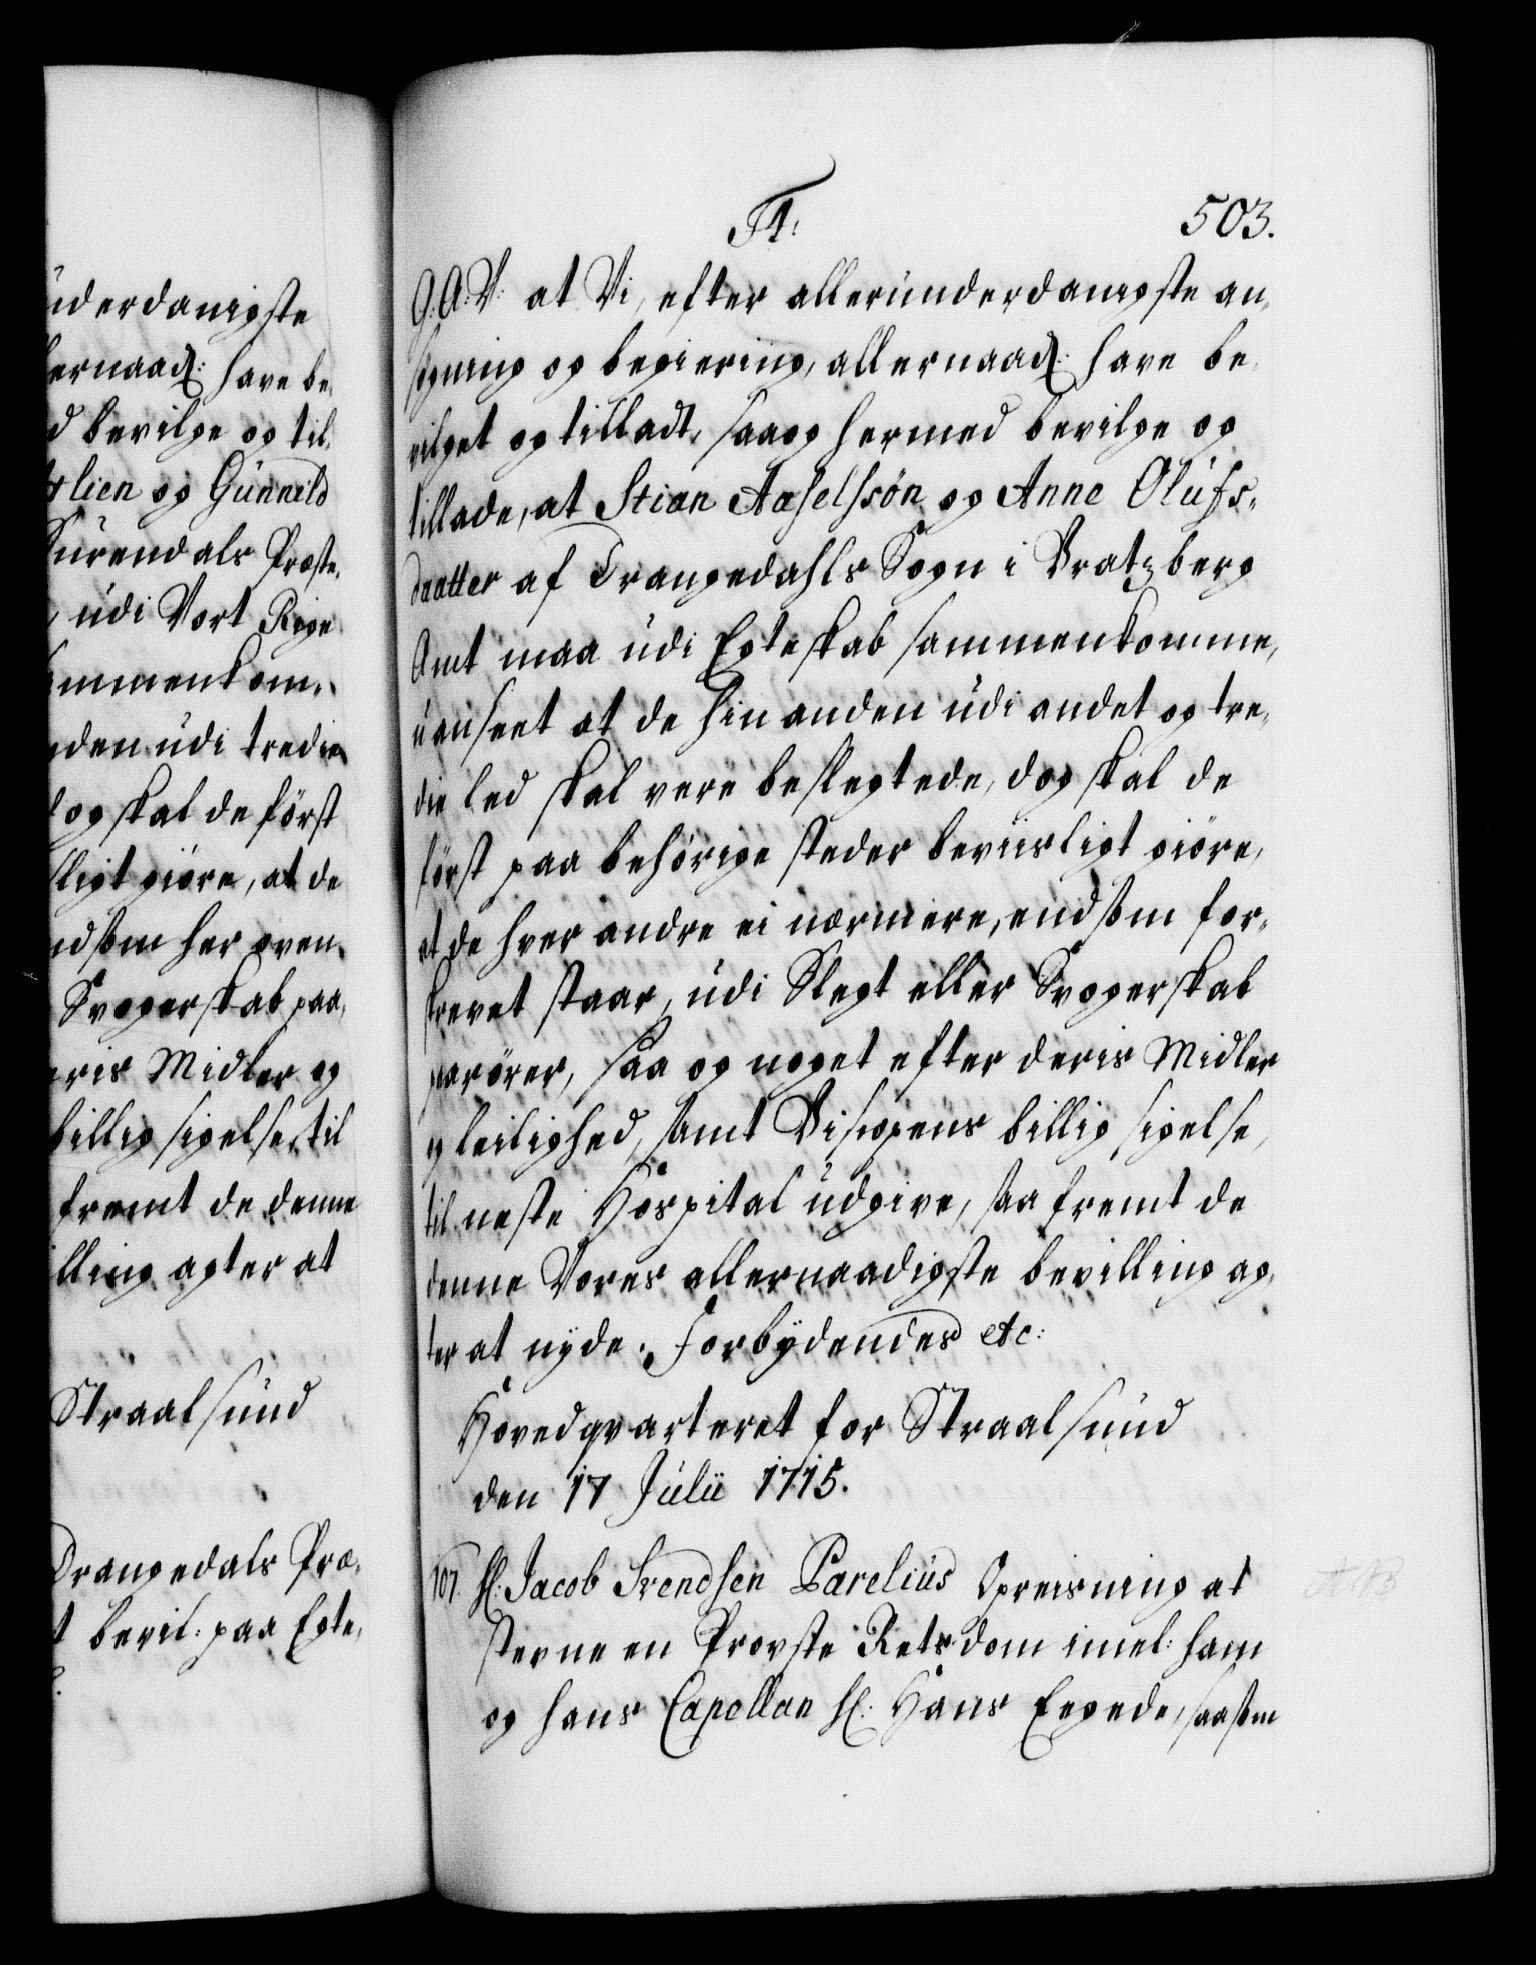 üderdanigste
ernaad: have be,
d bevilge og til,
lien og Günnild
Sürendals Præste,
udi Vort Rige
mmenkom,
den udi tredie
dog skal de först
ligt giöre, at de
ndsom her oven,
Svogerskab paa,
eris Midler og
billig sigelse, til
fremt de denne
lling agter at
Straalsund
Drangedals Præ,
t bevil: paa Egte,
F4:
503.
G: A: V: at Vi, efter allerunderdanigste an,
sögning og begiering, allernaad: have be,
vilget og tilladt, saa og hermed bevilge og
tillade, at Stian Aaselssön og Anne Olufs,
daatter af Drangedahls Sogn i Bratzberg
Amt maa udi Egteskab sammenkomme,
uanseet at de hinanden udi andet og tre,
die led skal være beslegtede, dog skal de
först paa behörige steder beviisligt giöre,
at de hver andre ei nærmere, endsom for,
skrevet staar, udi Slegt eller Svogerskab
paarörer, saa og noget efter deris Midler
og leilighed, samt Biscopens billig sigelse,
til neste Hospital udgive, saa fremt de
denne Vores allernaadigste bevilling ag,
ter at nyde. Forbydendes etc:
Hovedqvarteret for Straalsund
den 17 Julii 1715.
107. Hr: Jacob Svendsen Parelius Opreisning at
stevne en Provste Rets dom imel: ham
og hans Capellan Hr: Hans Eegede, saasom